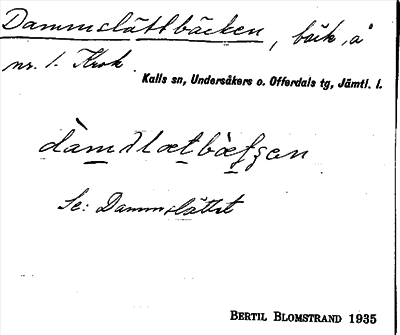 Dammslättbäcken, bäck, å
nr. 1. Krok.
Kalls sn, Undersåkers o. Offerdals tg, Jämtl. l.
Se: Dammslättet
BERTIL BLOMSTRAND 1935